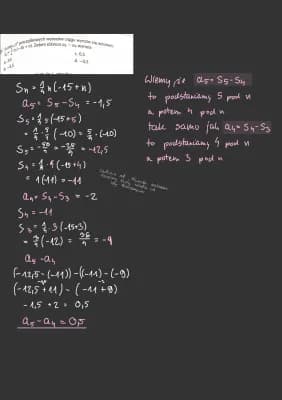 Sn = 1/4 n(-15+n)
a5 = S5 - S4 = -1,5
S5 = 1/4 · 5(-15+5)
= 1/4 · 5 · (-10) = 5/4 · (-10)
S5 = -50/4 = -25/2 = -12,5
S4 = 1/4 · 4(-15+4)
= 1(-11) = -11
a4 = S4 - S3 = -2
S4 = -11
S3 = 1/4 · 3(-15+3)
= 3/4(-12) = 36/4 = -9
a5 - a4
(-12,5-(-11)) - ((-11)-(-9)
(-12,5+11) - (-11+9)
-1,5 + 2 = 0,5
a5 - a4 = 0,5
Wiemy, że a5 = S5 - S4
to podstawiamy 5 pod n
a potem 4 pod n
tak samo jak a4 = S4 - S3
to podstawiamy 4 pod n
a potem 3 pod n